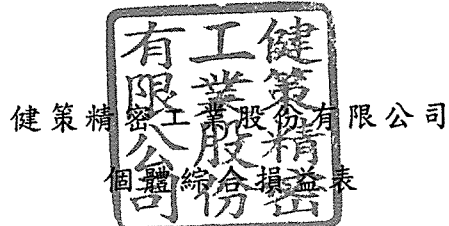 健策精密工業股份有限公司
個體綜合損益表
健策精密
工業股份
有限公司